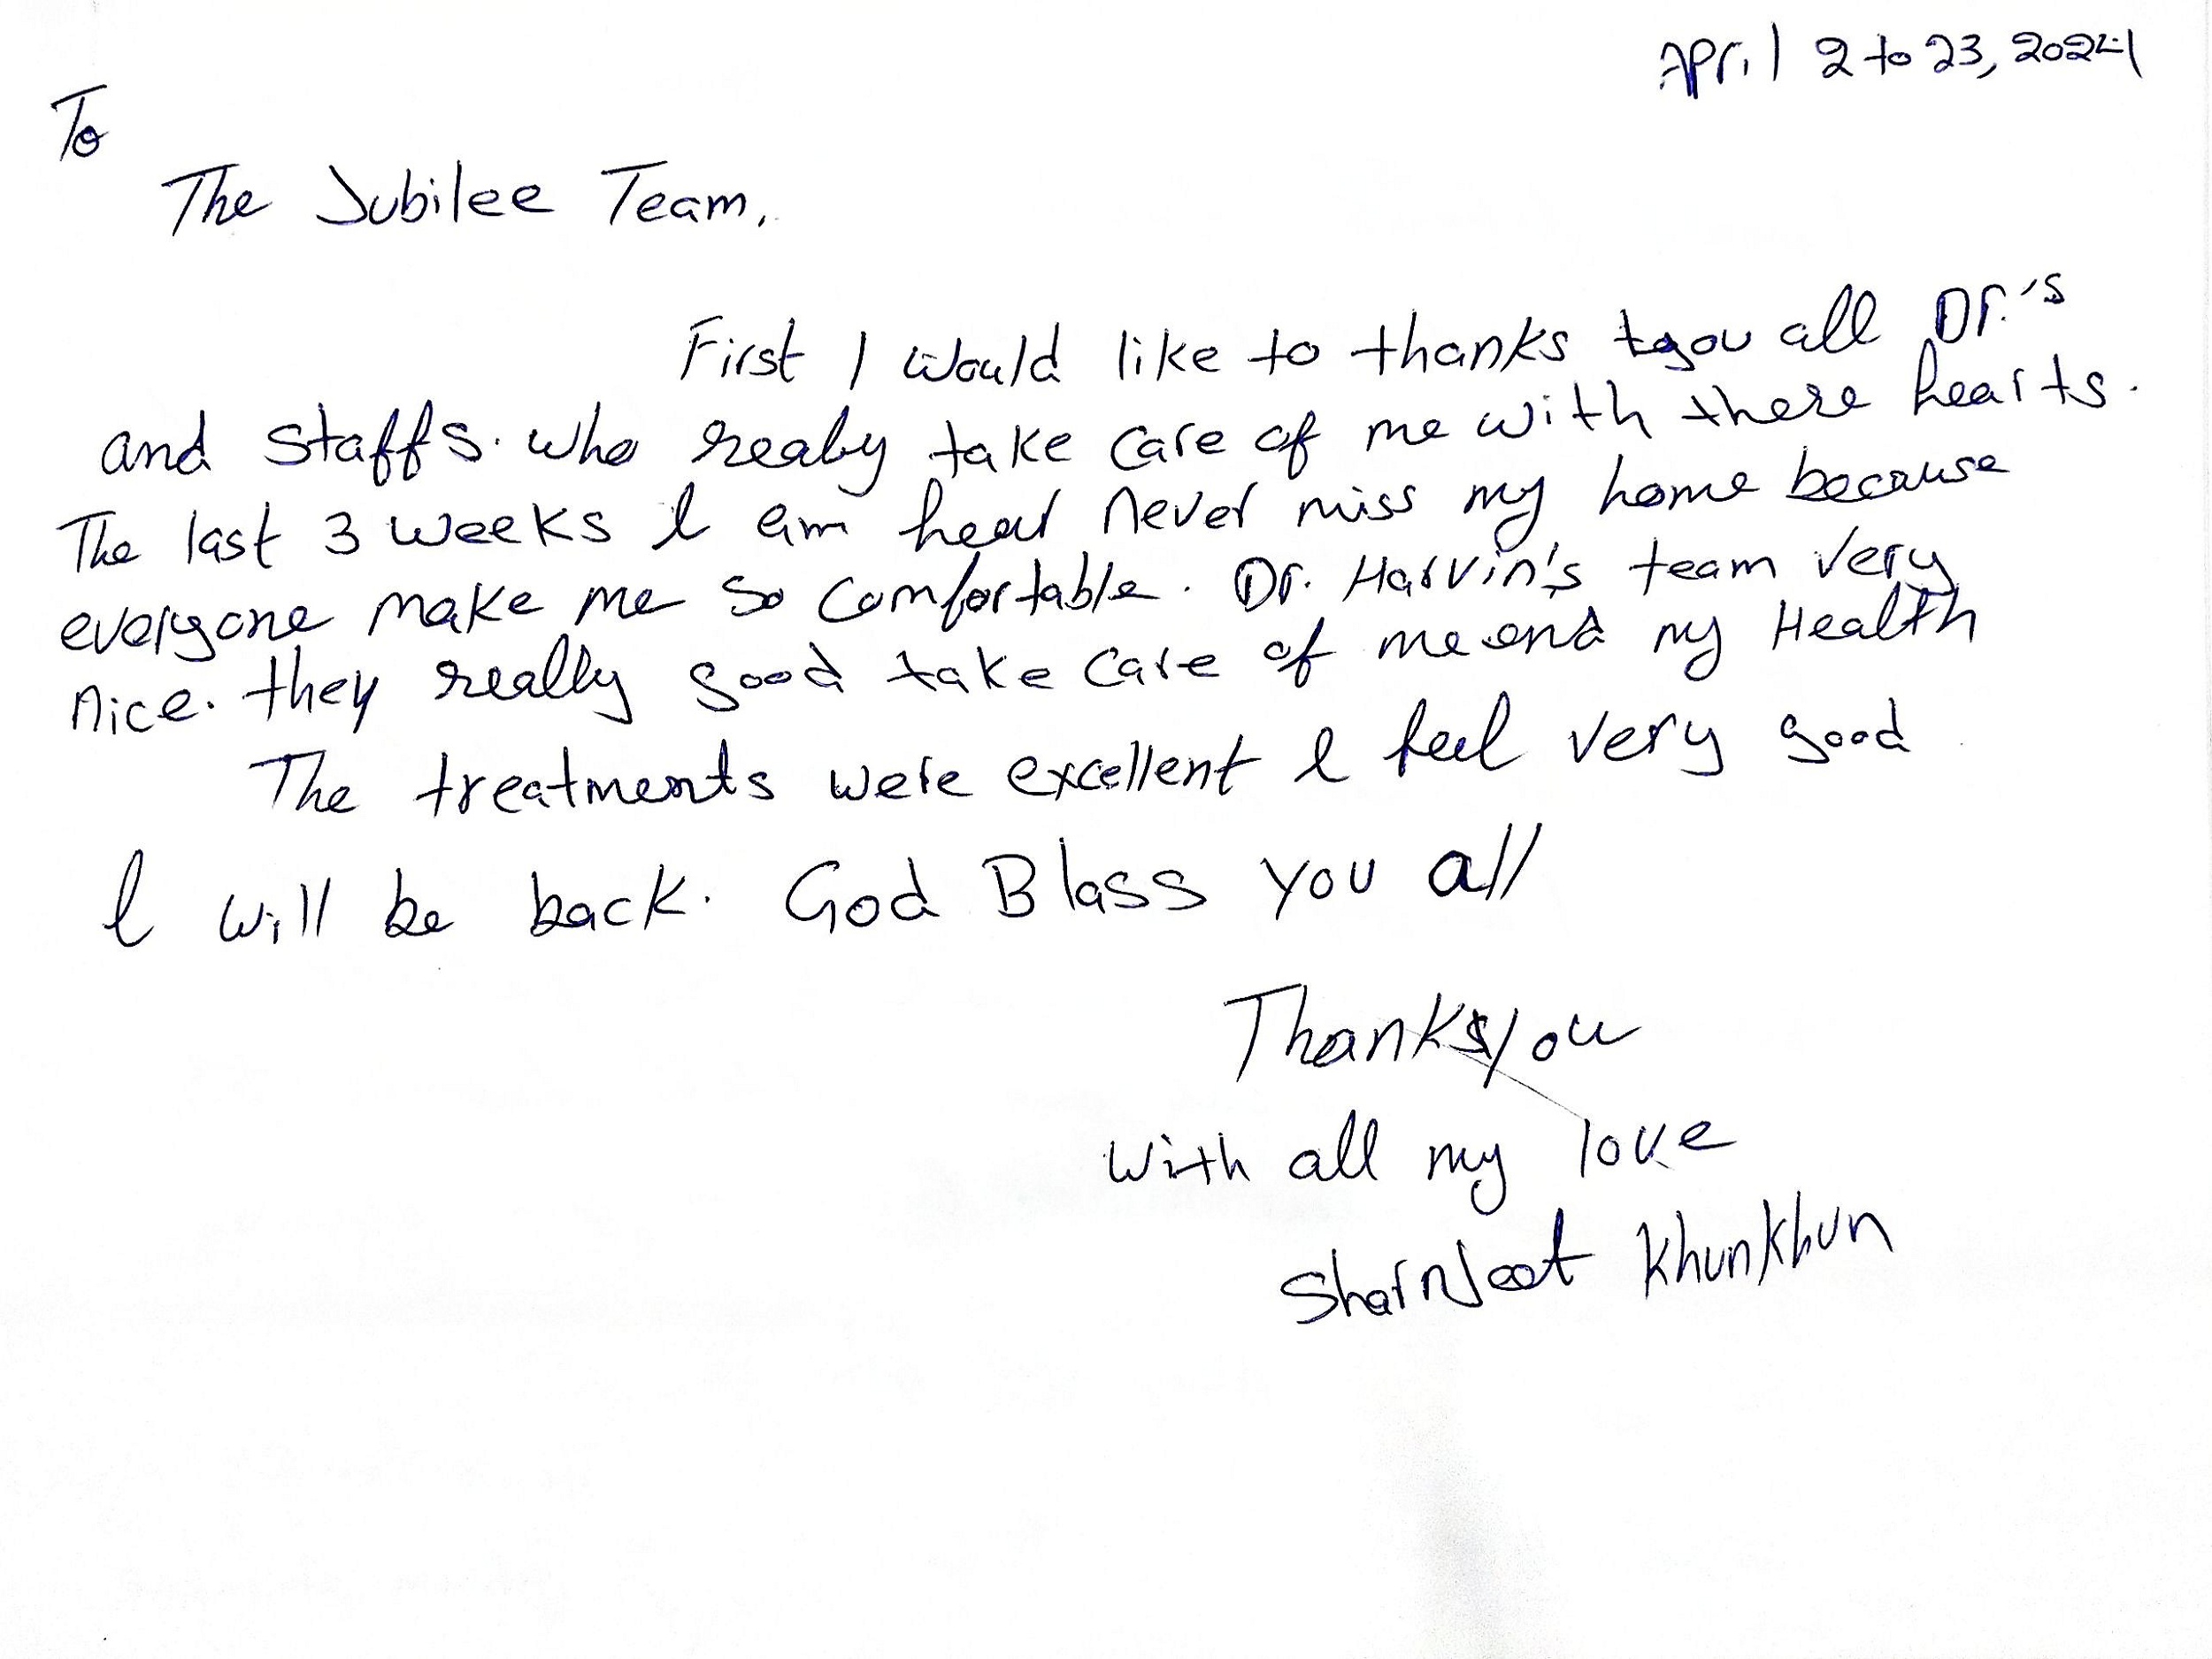 April 2 to 23, 2024
To
The Jubilee Team,
First I would like to thanks you all Dr.'s
and staffs. who realy take care of me with there hearts.
The last 3 weeks I am hear never miss my home because
everyone make me so comfortable. Dr. Harvin's team very
nice. they really good take care of me and my Health
The treatments were excellent I feel very good
I will be back. God Blass you all
Thanks you
with all my love
Sharnjeet Khunkhun